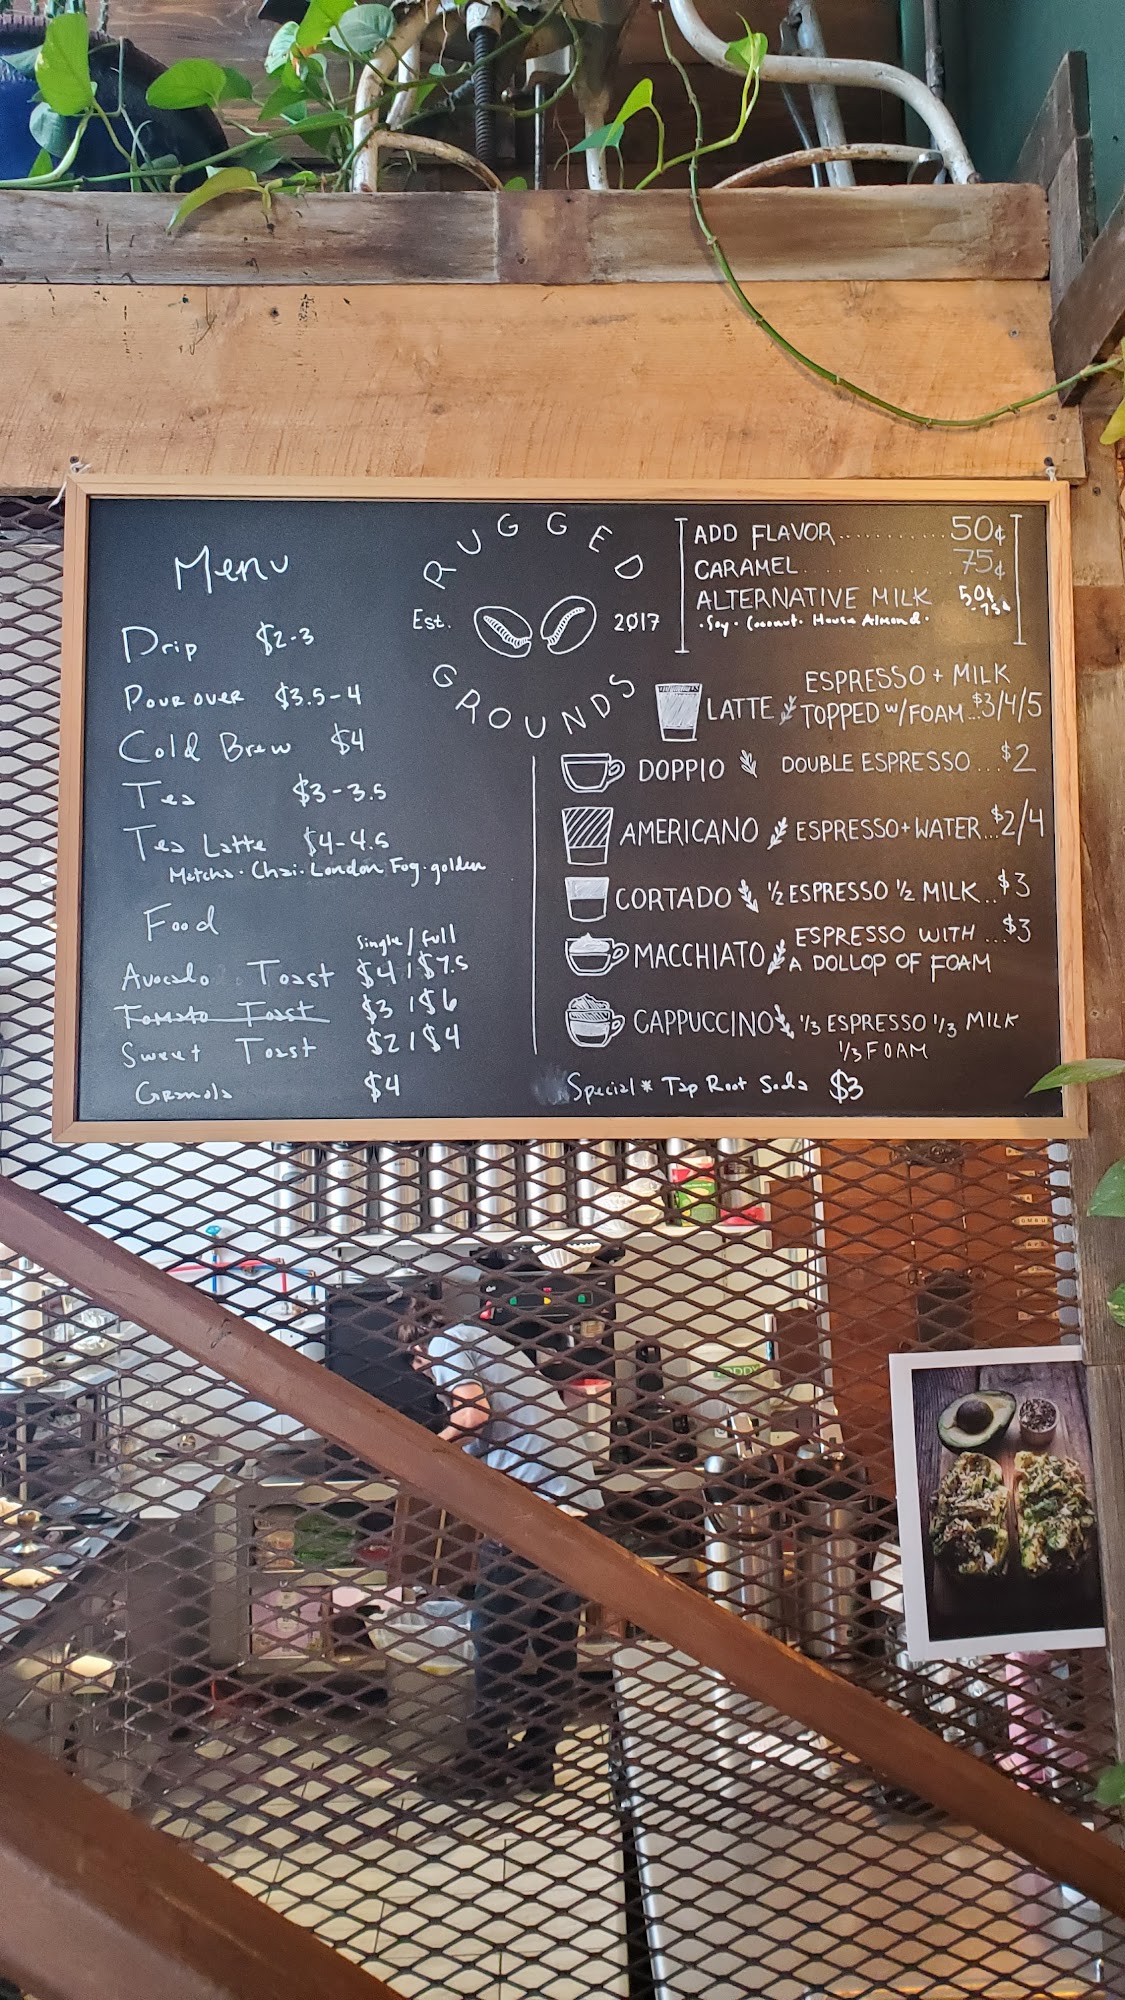 Menu
Drip $2-3
Pour over $3.5-4
Cold Brew $4
Tea $3-3.5
Tea Latte $4-4.5
Matcha · Chai · London Fog · golden
Food
Single / full
Avocado Toast $4 | $7.5
Tomato Toast $3 | $6
Sweet Toast $2 | $4
Granola $4
RUGGED
Est. 2017
GROUNDS
ADD FLAVOR.......... 50¢
CARAMEL.......... 75¢
ALTERNATIVE MILK 50¢-75¢
· Soy · Coconut · House Almond ·
ESPRESSO + MILK
LATTE TOPPED w/FOAM...$3/4/5
DOPPIO DOUBLE ESPRESSO...$2
AMERICANO ESPRESSO+WATER...$2/4
CORTADO 1/2 ESPRESSO 1/2 MILK..$3
ESPRESSO WITH ...$3
MACCHIATO A DOLLOP OF FOAM
CAPPUCCINO 1/3 ESPRESSO 1/3 MILK
1/3 FOAM
Special * Tap Root Soda $3